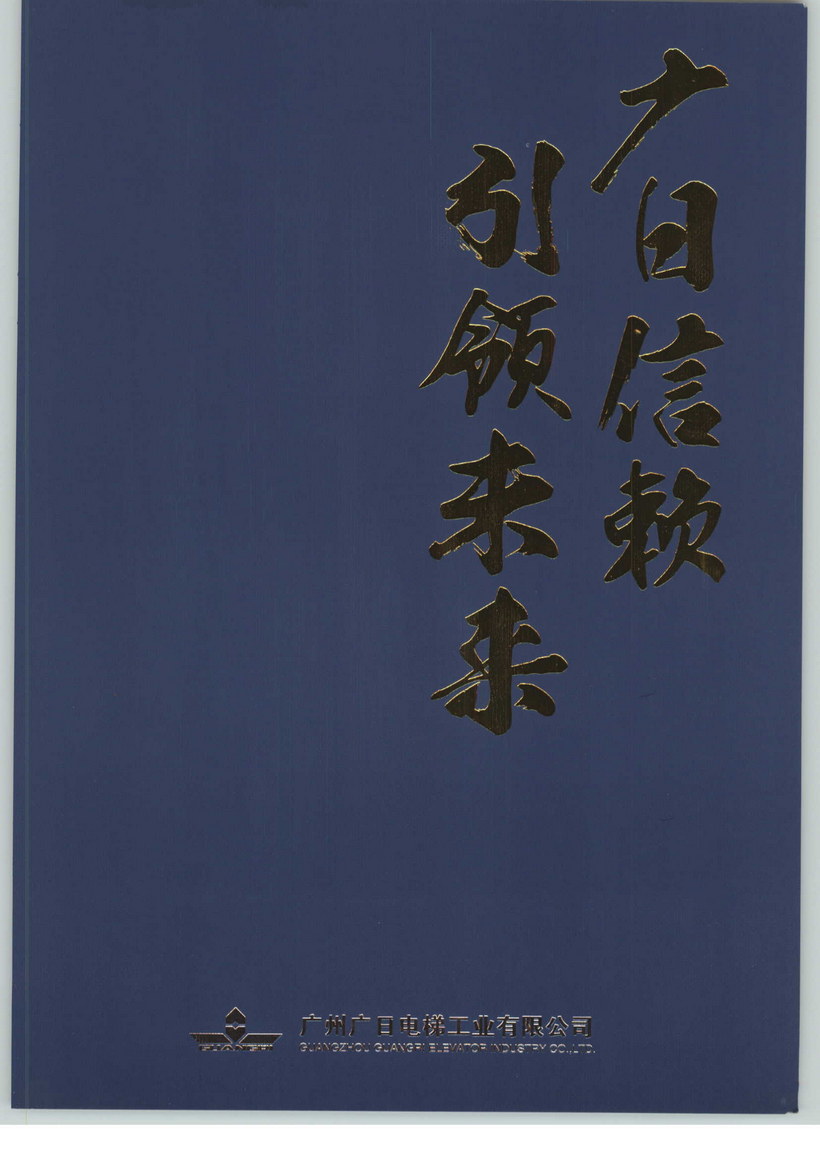 广日信赖
引领未来
GUANGRI
广州广日电梯工业有限公司
GUANGZHOU GUANGRI ELEVATOR INDUSTRY CO.,LTD.